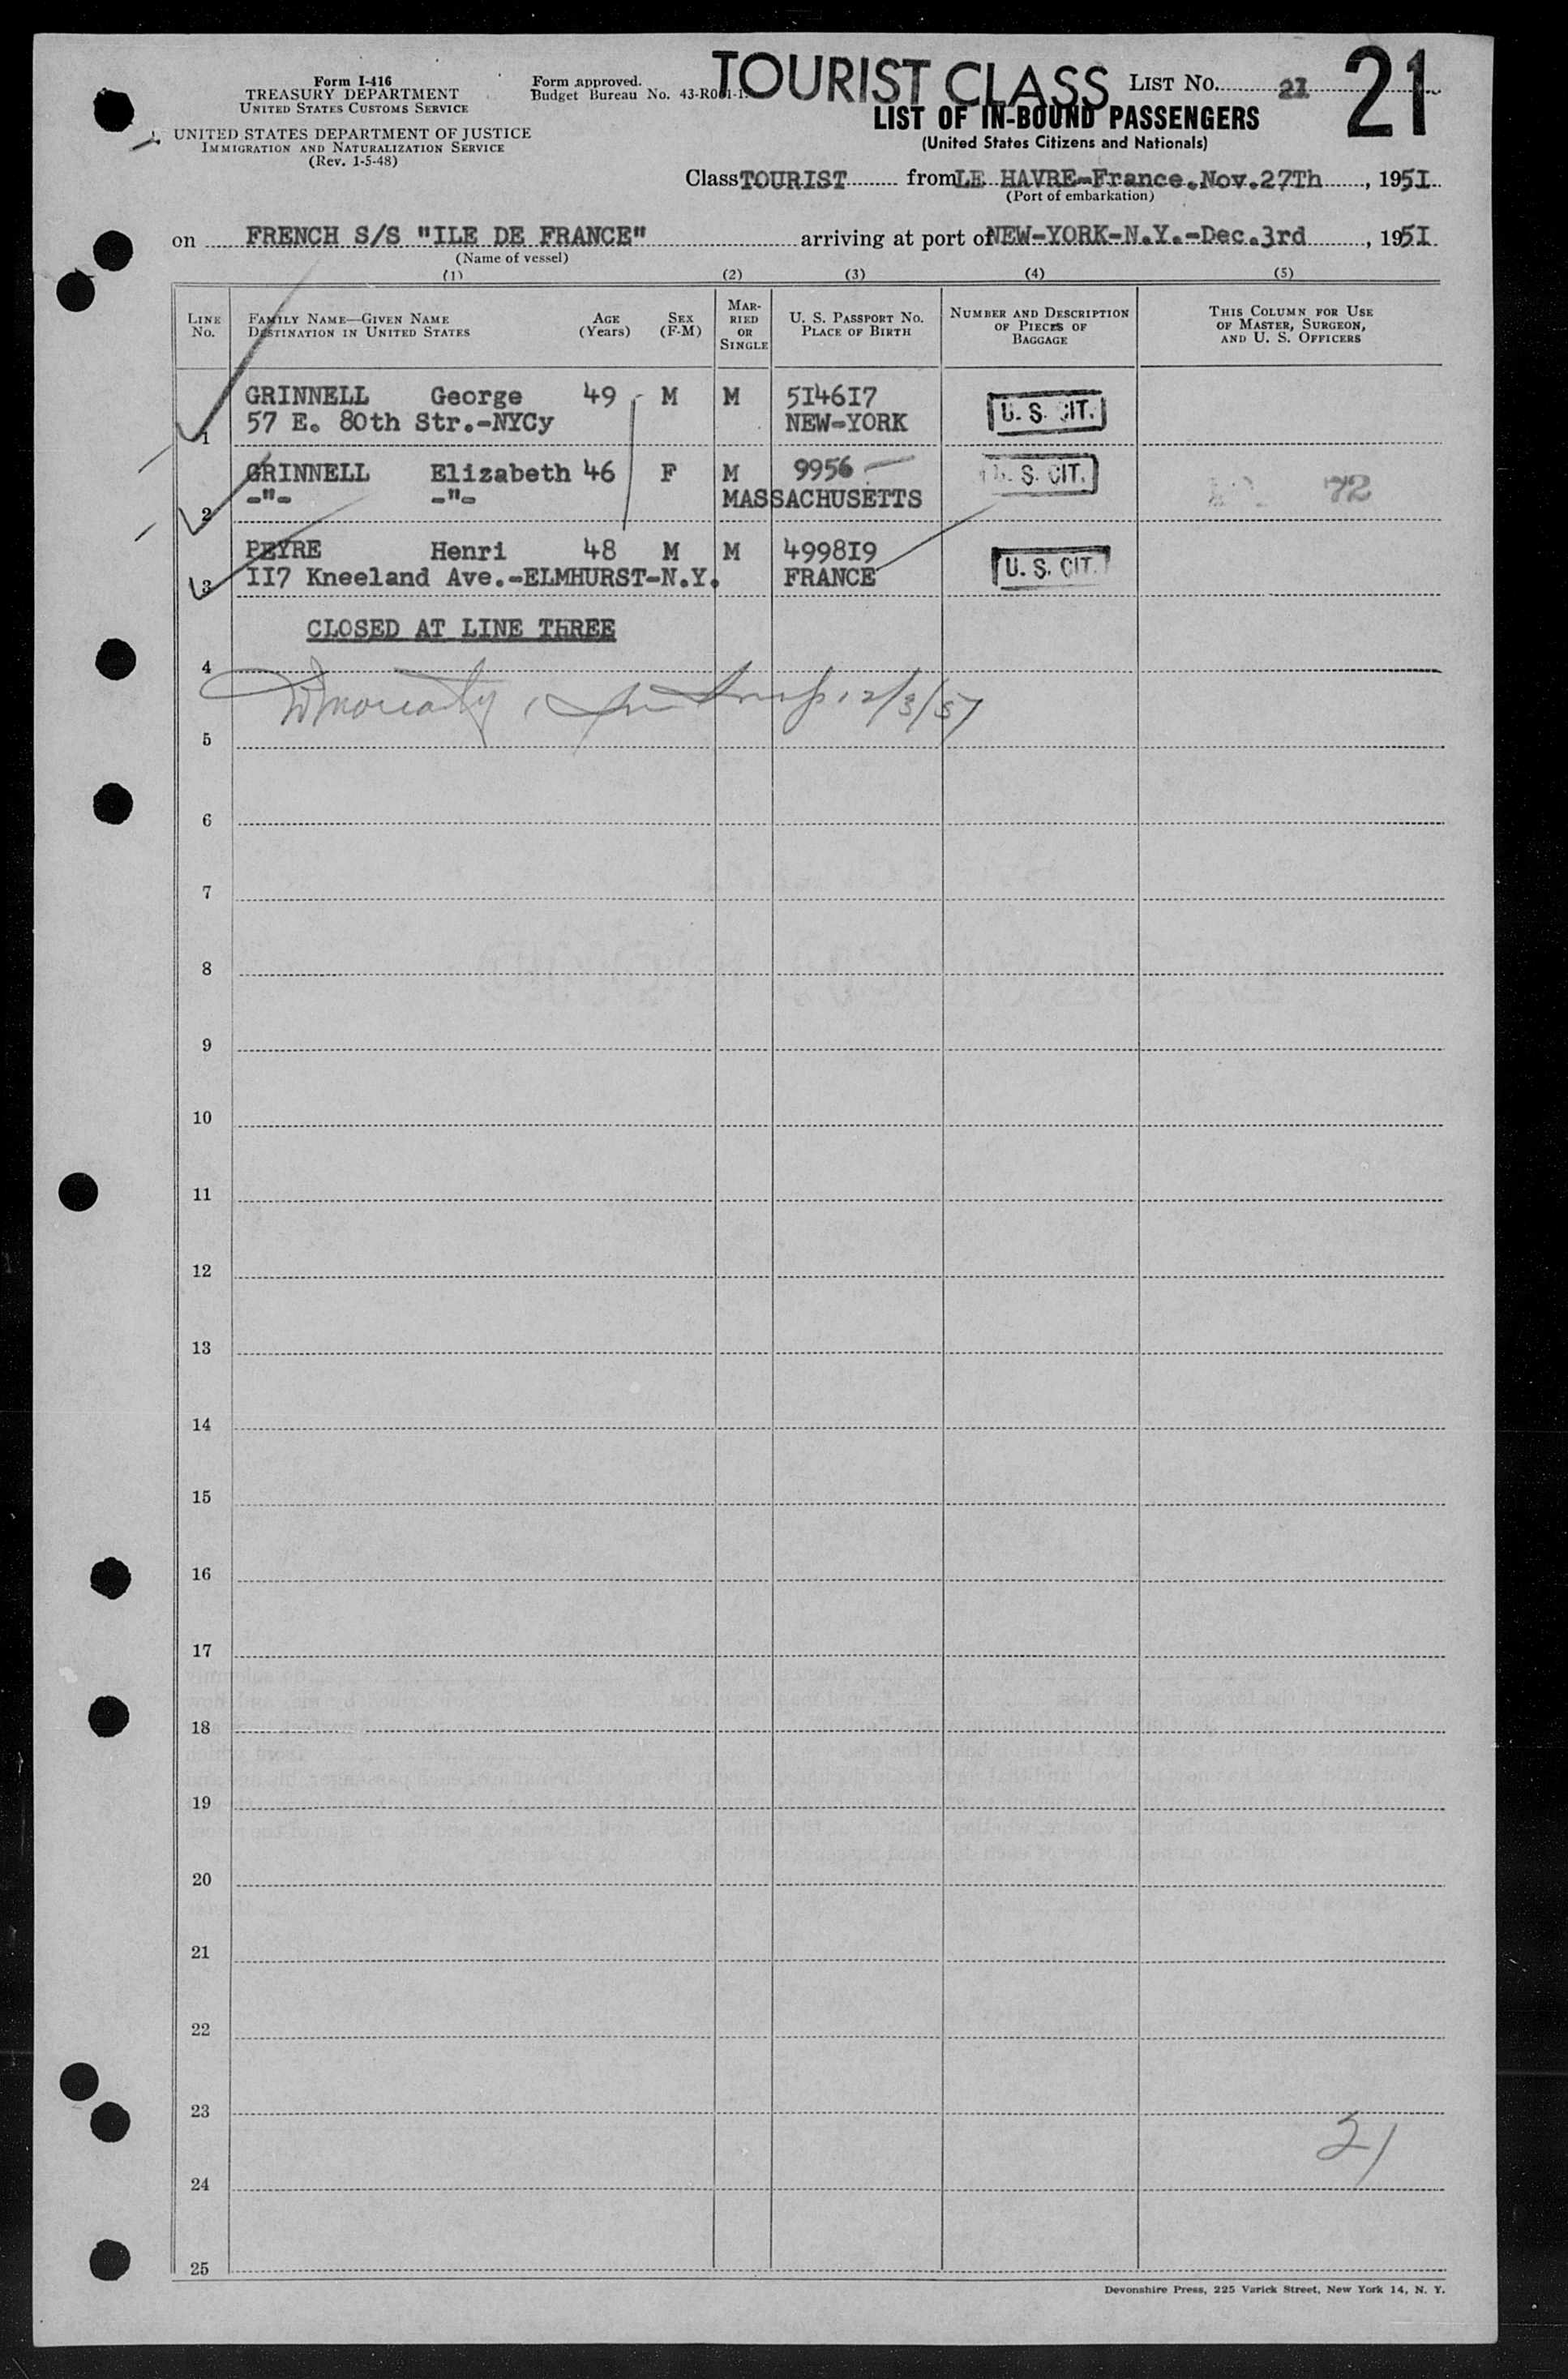 Form I-416
TREASURY DEPARTMENT
UNITED STATES CUSTOMS SERVICE
UNITED STATES DEPARTMENT OF JUSTICE
IMMIGRATION AND NATURALIZATION SERVICE
(Rev. 1-5-48)
Form approved.
Budget Bureau No.
TOURIST CLASS
LIST No. 21
21
LIST OF IN-BOUND PASSENGERS
(United States Citizens and Nationals)
Class TOURIST from LE HAVRE-France.Nov.27Th, 195I
(Port of embarkation)
on FRENCH S/S "ILE DE FRANCE" arriving at port of NEW-YORK-N.Y.-Dec.3rd, 195I
(Name of vessel)
(1) (2) (3) (4) (5)
LINE No. FAMILY NAME—GIVEN NAME DESTINATION IN UNITED STATES AGE (Years) SEX (F-M) MARRIED OR SINGLE U. S. PASSPORT No. PLACE OF BIRTH NUMBER AND DESCRIPTION OF PIECES OF BAGGAGE THIS COLUMN FOR USE OF MASTER, SURGEON, AND U. S. OFFICERS
GRINNELL George 49 M M 5I46I7 U. S. CIT.
1 57 E. 80th Str.-NYCy NEW-YORK
GRINNELL Elizabeth 46 F M 9956 U. S. CIT. 72
2 -"- -"- MASSACHUSETTS
PEYRE Henri 48 M M 4998I9 U. S. CIT.
3 II7 Kneeland Ave.-ELMHURST-N.Y. FRANCE
CLOSED AT LINE THREE
4
12/3/51
5
6
7
8
9
10
11
12
13
14
15
16
17
18
19
20
21
22
23
21
24
25
Devonshire Press, 225 Varick Street, New York 14, N. Y.